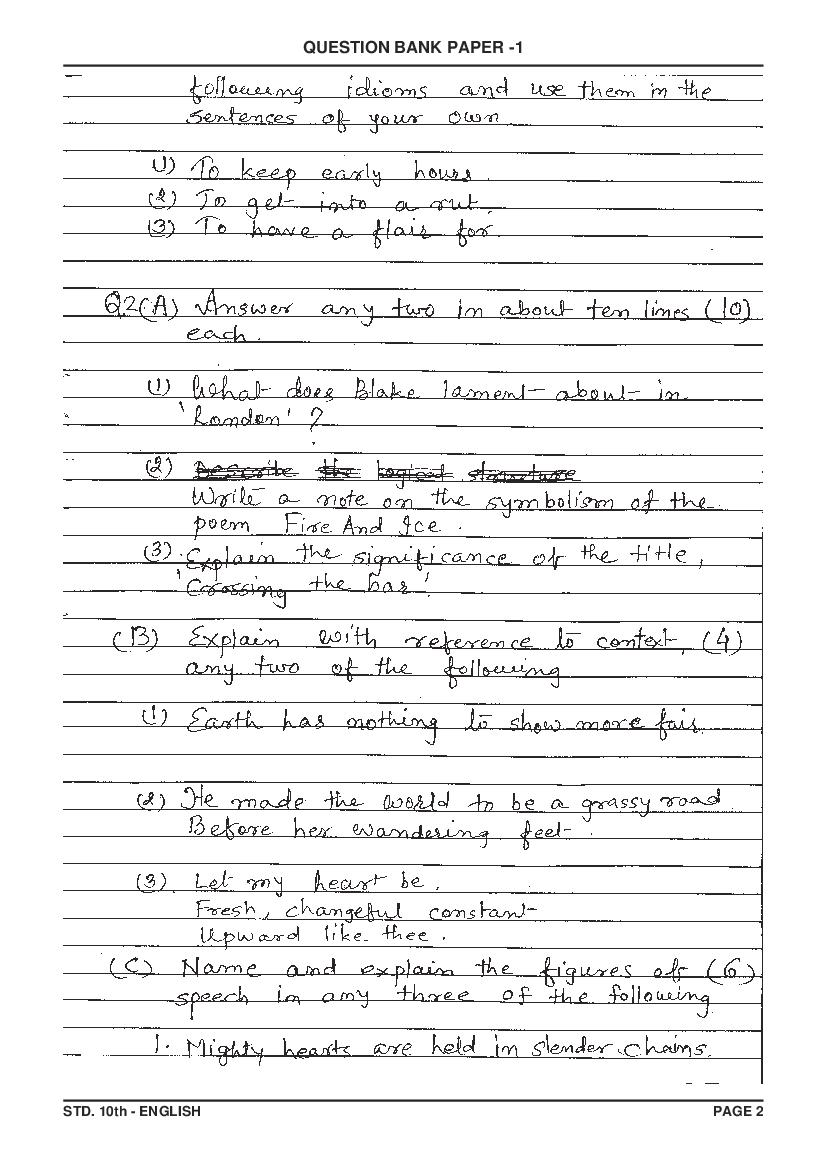 QUESTION BANK PAPER -1
following idioms and use them in the
sentences of your own
(1) To keep early hours.
(2) To get into a rut.
(3) To have a flair for
Q2(A) Answer any two in about ten lines (10)
each.
(1) What does Blake lament about in
'London' ?
(2) Describe the logical structure
Write a note on the symbolism of the
poem Fire And Ice.
(3) Explain the significance of the title,
'Crossing the bar'
(B) Explain with reference to context, (4)
any two of the following
(1) Earth has nothing to show more fair.
(2) He made the world to be a grassy road
Before her wandering feet.
(3) Let my heart be,
Fresh, changeful constant
Upward like thee.
(C) Name and explain the figures of (6)
speech in any three of the following
1. Mighty hearts are held in slender chains.
STD. 10th - ENGLISH PAGE 2